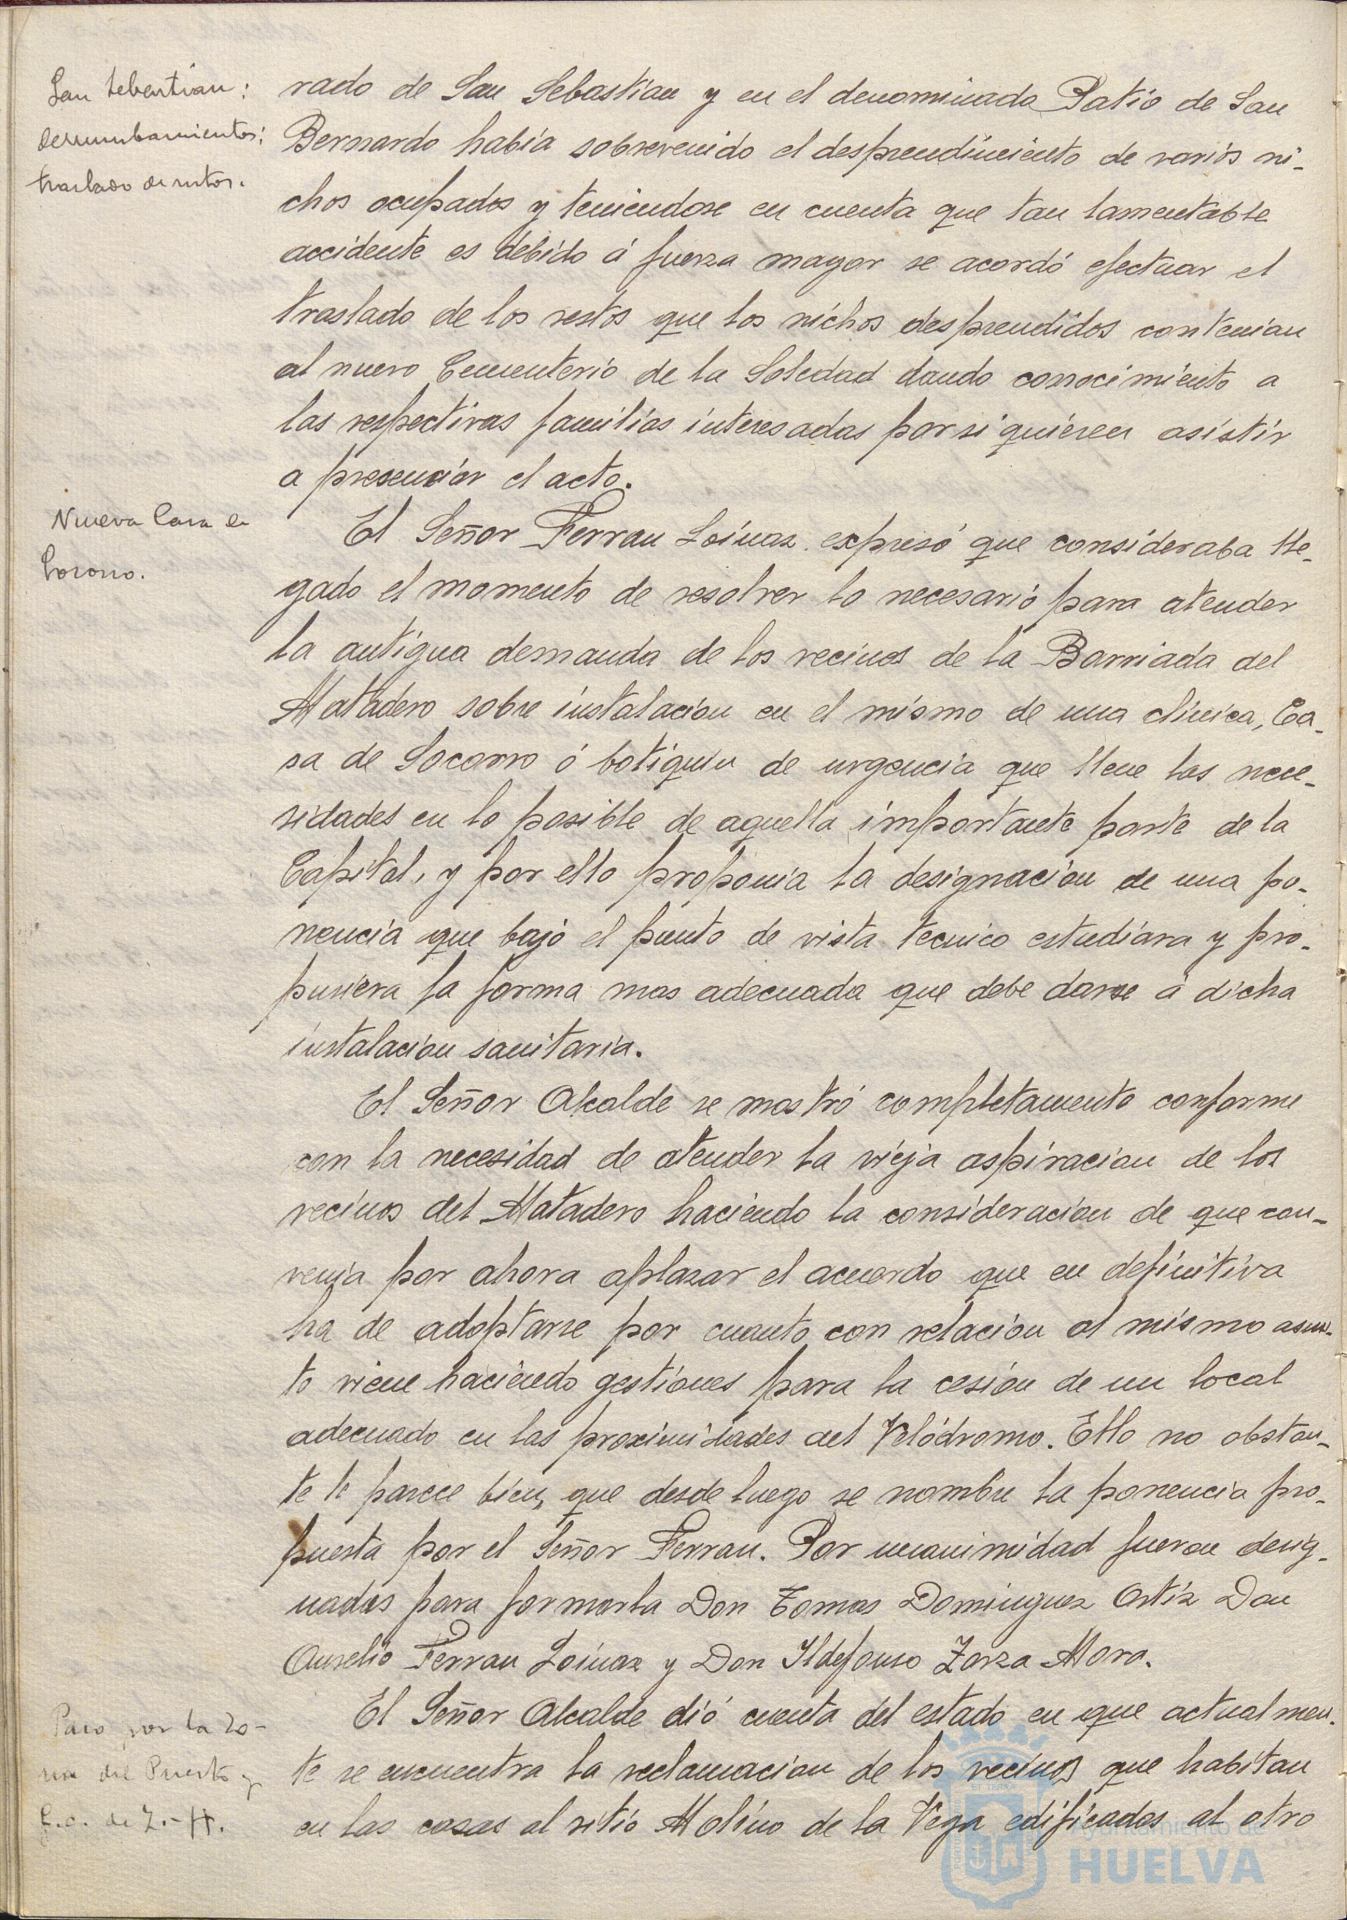 San Sebastian:
derrumbamientos:
traslado de restos.
rado de San Sebastian y en el denominado Patio de San
Bernardo había sobrevenido el desprendimiento de varios ni-
chos ocupados y teniendose en cuenta que tan lamentable
accidente es debido á fuerza mayor se acordó efectuar el
traslado de los restos que los nichos desprendidos contenian
al nuevo Cementerio de la Soledad dando conocimiento a
las respectivas familias interesadas por si quieren asistir
a presenciar el acto.
Nueva Casa de
Socorro.
El Señor Ferran Loinaz expresó que consideraba lle-
gado el momento de resolver lo necesario para atender
la antigua demanda de los vecinos de la Barriada del
Matadero sobre instalacion en el mismo de una clinica, Ca-
sa de Socorro ó botiquin de urgencia que llene las nece-
sidades en lo posible de aquella importante parte de la
Capital, y por ello proponia la designación de una po-
nencia que bajo el punto de vista tecnico estudiara y pro-
pusiera la forma mas adecuada que debe darse á dicha
instalacion sanitaria.
El Señor Alcalde se mostró completamente conforme
con la necesidad de atender la vieja aspiracion de los
vecinos del Matadero haciendo la consideracion de que con-
venia por ahora aplazar el acuerdo que en definitiva
ha de adoptarse por cuanto con relacion al mismo asun-
to viene haciendo gestiones para la cesión de un local
adecuado en las proximidades del Velódromo. Ello no obstan-
te le parece bien, que desde luego se nombre la ponencia pro-
puesta por el Señor Ferran. Por unanimidad fueron desig-
nados para formarla Don Tomas Dominguez Ortiz Don
Aurelio Ferran Loinaz y Don Ildefonso Zarza Mora.
Paso por la zo-
na del Puerto y
f.c. de Z.-H.
El Señor Alcalde dió cuenta del estado en que actualmen-
te se encuentra la reclamacion de los vecinos que habitan
en las casas al sitio Molino de la Vega edificadas al otro
Ayuntamiento de
HUELVA